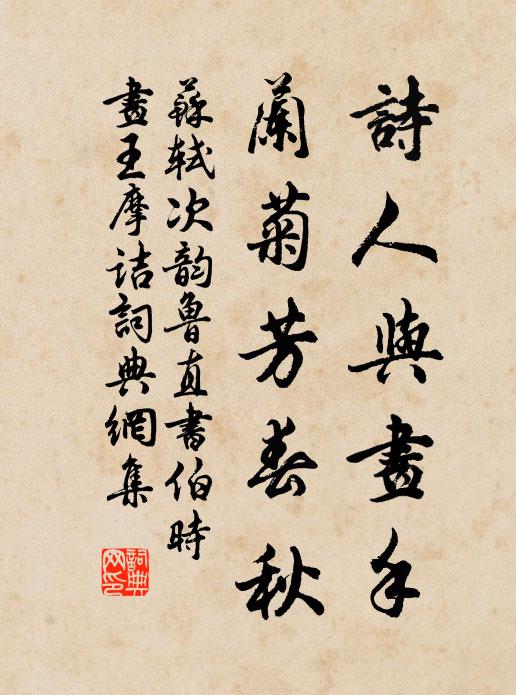 詩人與畫手
蘭菊芳春秋
蘇軾次韵魯直書伯時
畫王摩詰詞典網集
詞典网印